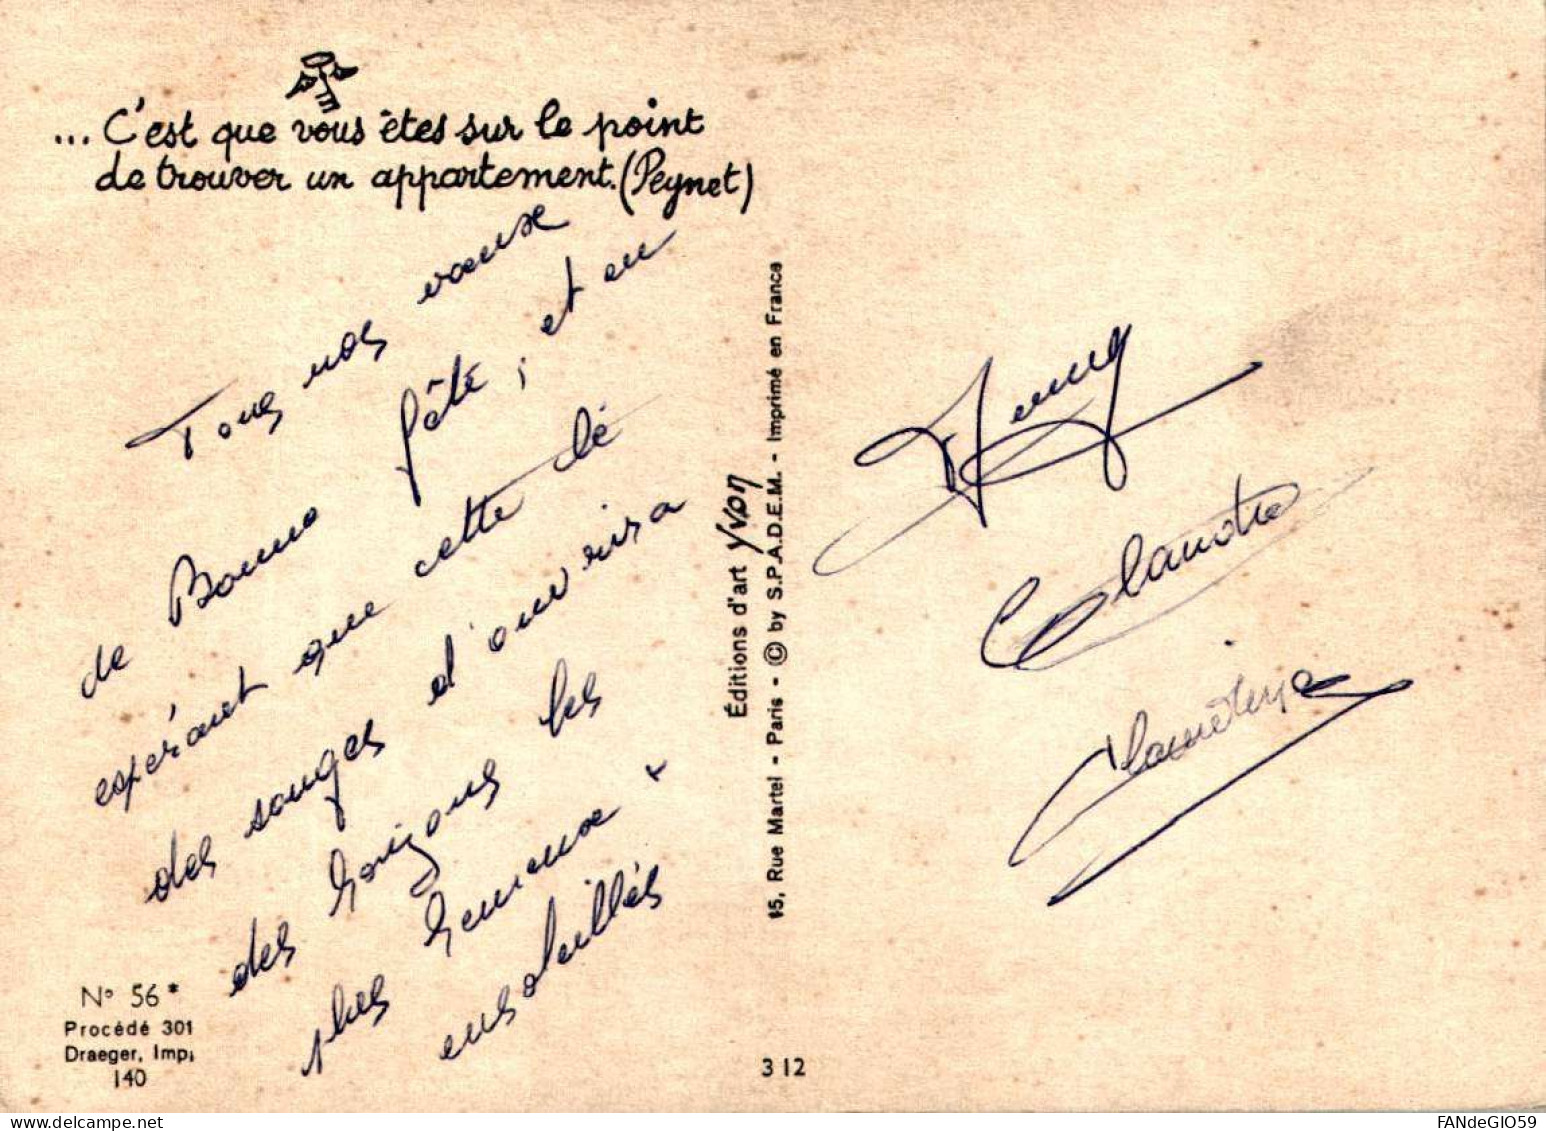 ... C'est que vous êtes sur le point
de trouver un appartement. (Peynet)
Tous nos vœux
de Bonne fête, et en
espérant que cette clé
des songes d'ouvrira
des horizons les
plus heureux +
ensoleillés
Éditions d'art Yvon
15, Rue Martel - Paris - © by S.P.A.D.E.M. - Imprimé en France
Claudine
N° 56 *
Procédé 301
Draeger, Imp.
140
3 12
FANdeGIO59